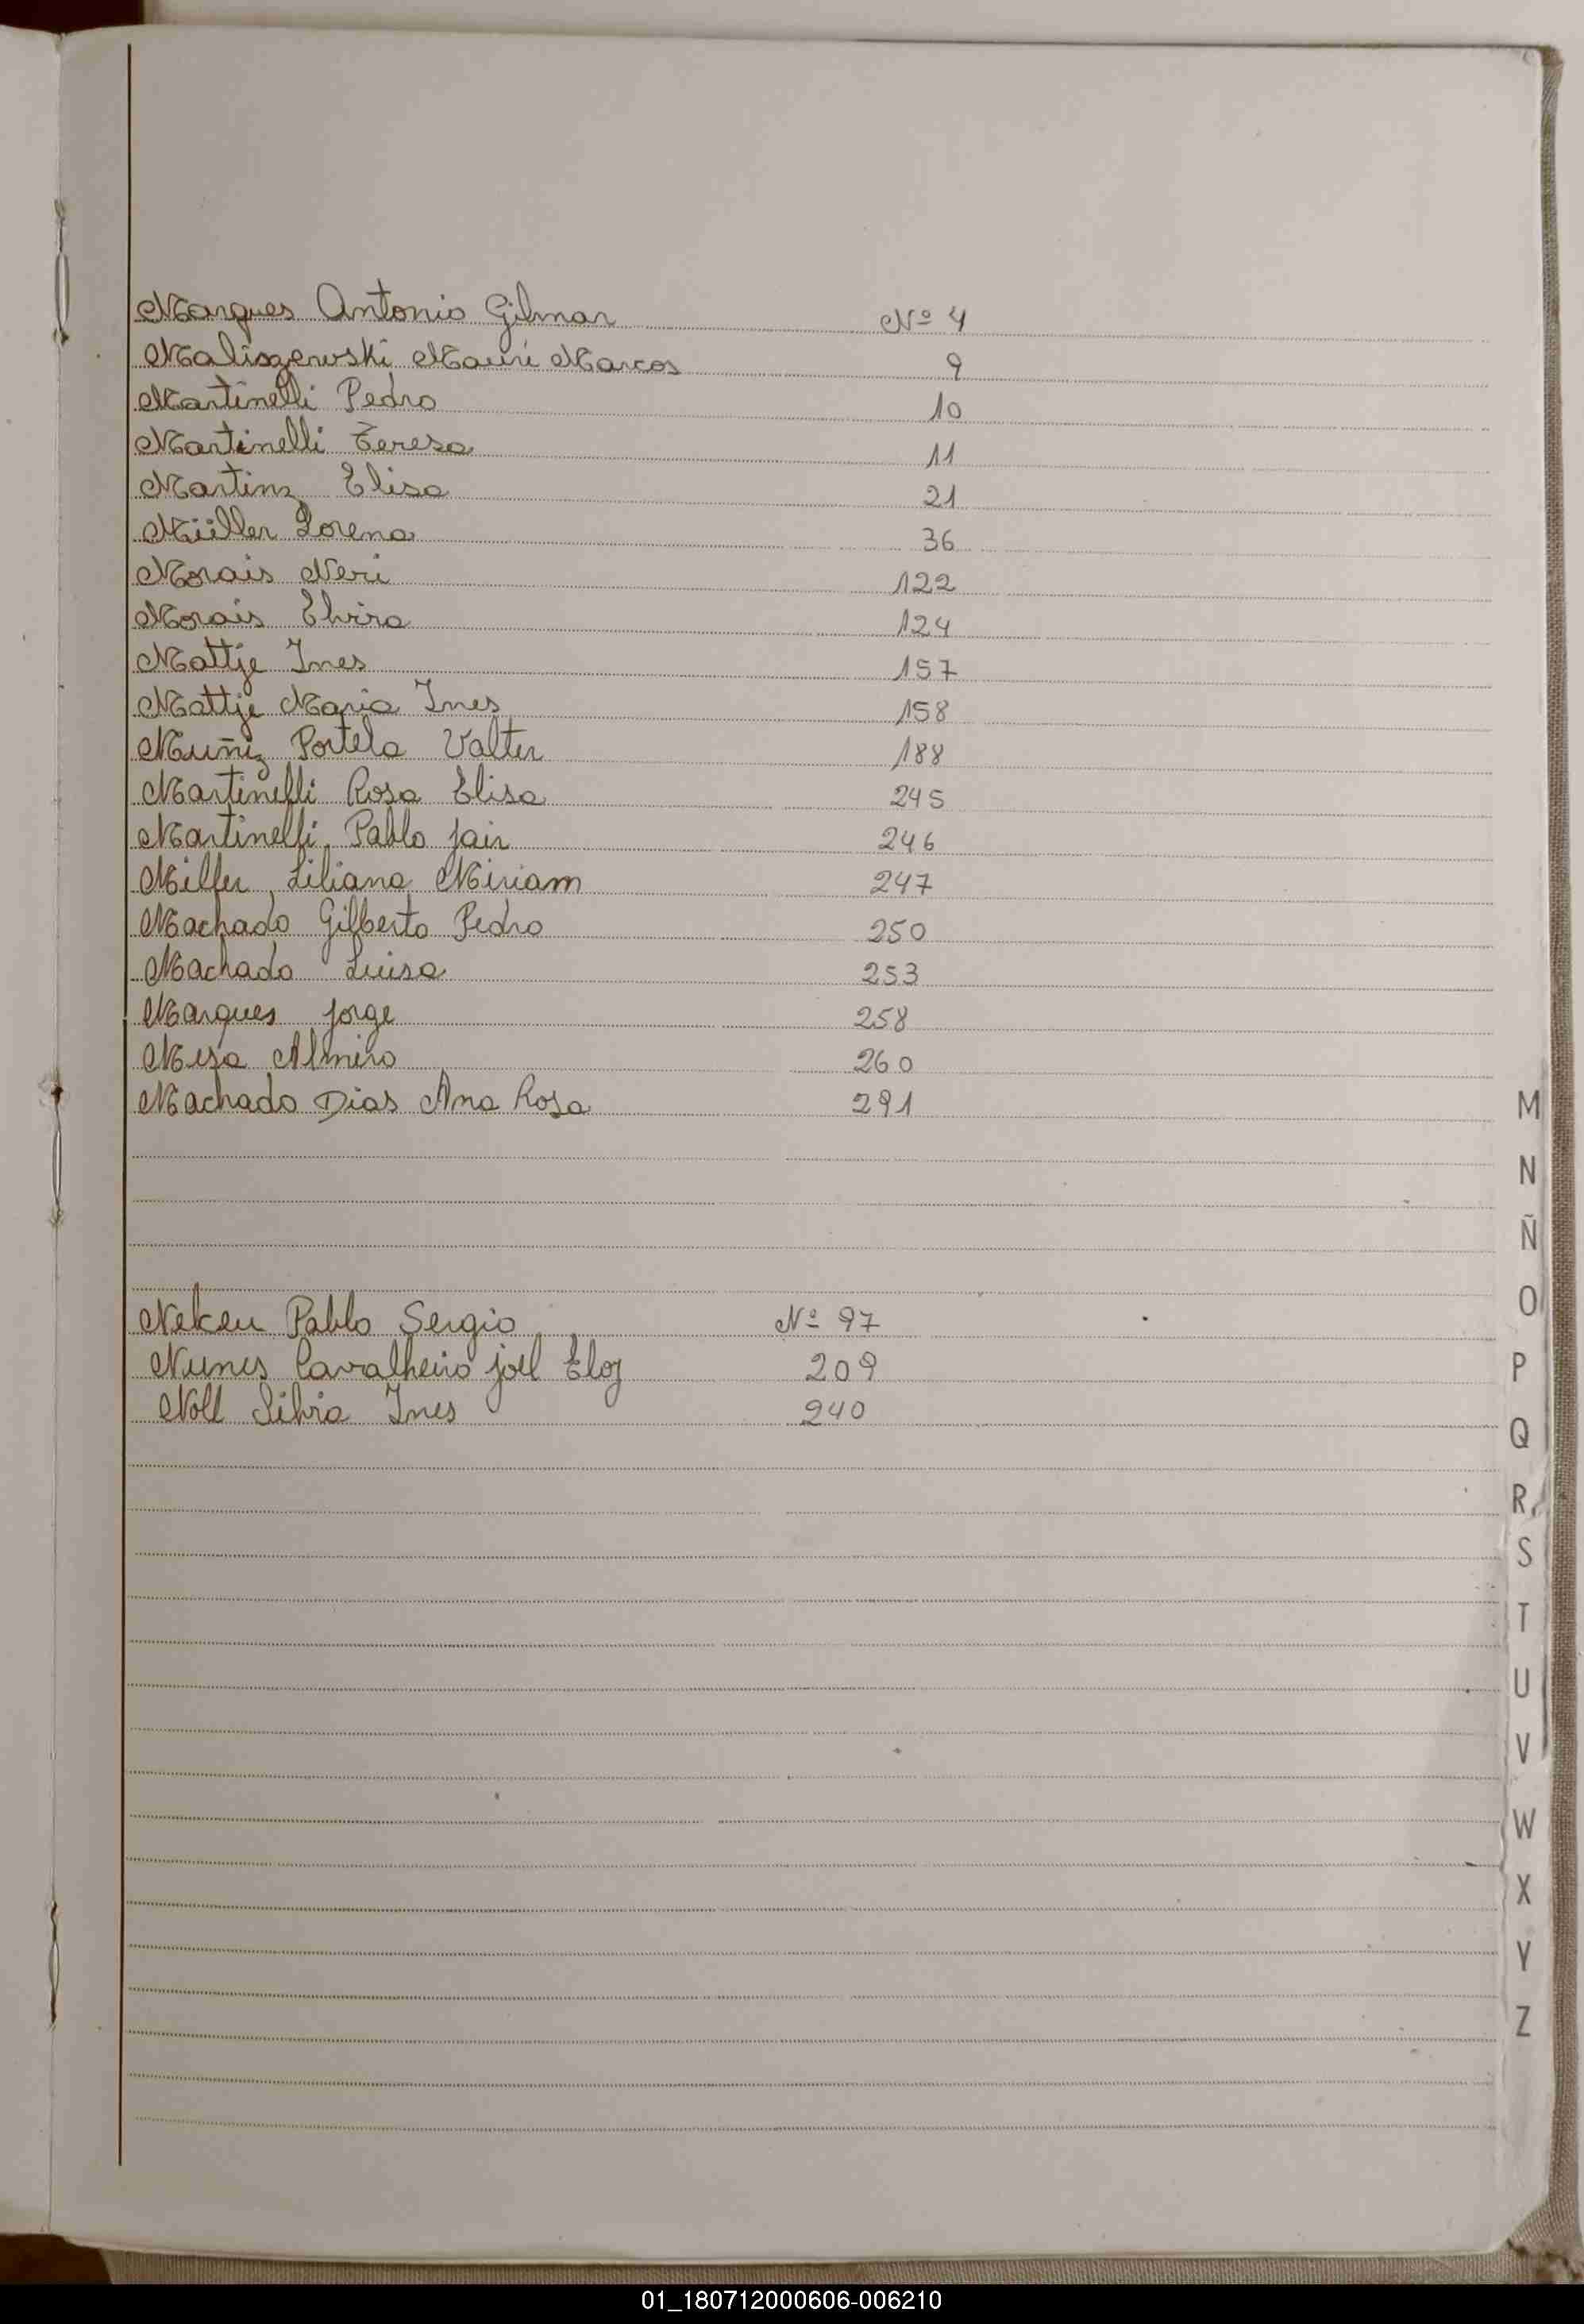 Marques Antonio Gilmar Nº 4
Maliszewski Mauri Marcos 9
Martinelli Pedro 10
Martinelli Teresa 11
Martinz Elisa 21
Müller Lorena 36
Morais Neri 122
Morais Elvira 124
Mattje Ines 157
Mattje Maria Ines 158
Muñiz Portela Valter 188
Martinelli Rosa Elisa 245
Martinelli Pablo Jair 246
Miller Liliana Miriam 247
Machado Gilberto Pedro 250
Machado Luisa 253
Marques Jorge 258
Mesa Almiro 260
Machado Dias Ana Rosa 291
Nekeu Pablo Sergio Nº 97
Nunes Cavalheiro Joel Eloy 209
Noll Silvia Ines 240
M
N
Ñ
O
P
Q
R
S
T
U
V
W
X
Y
Z
01_180712000606-006210